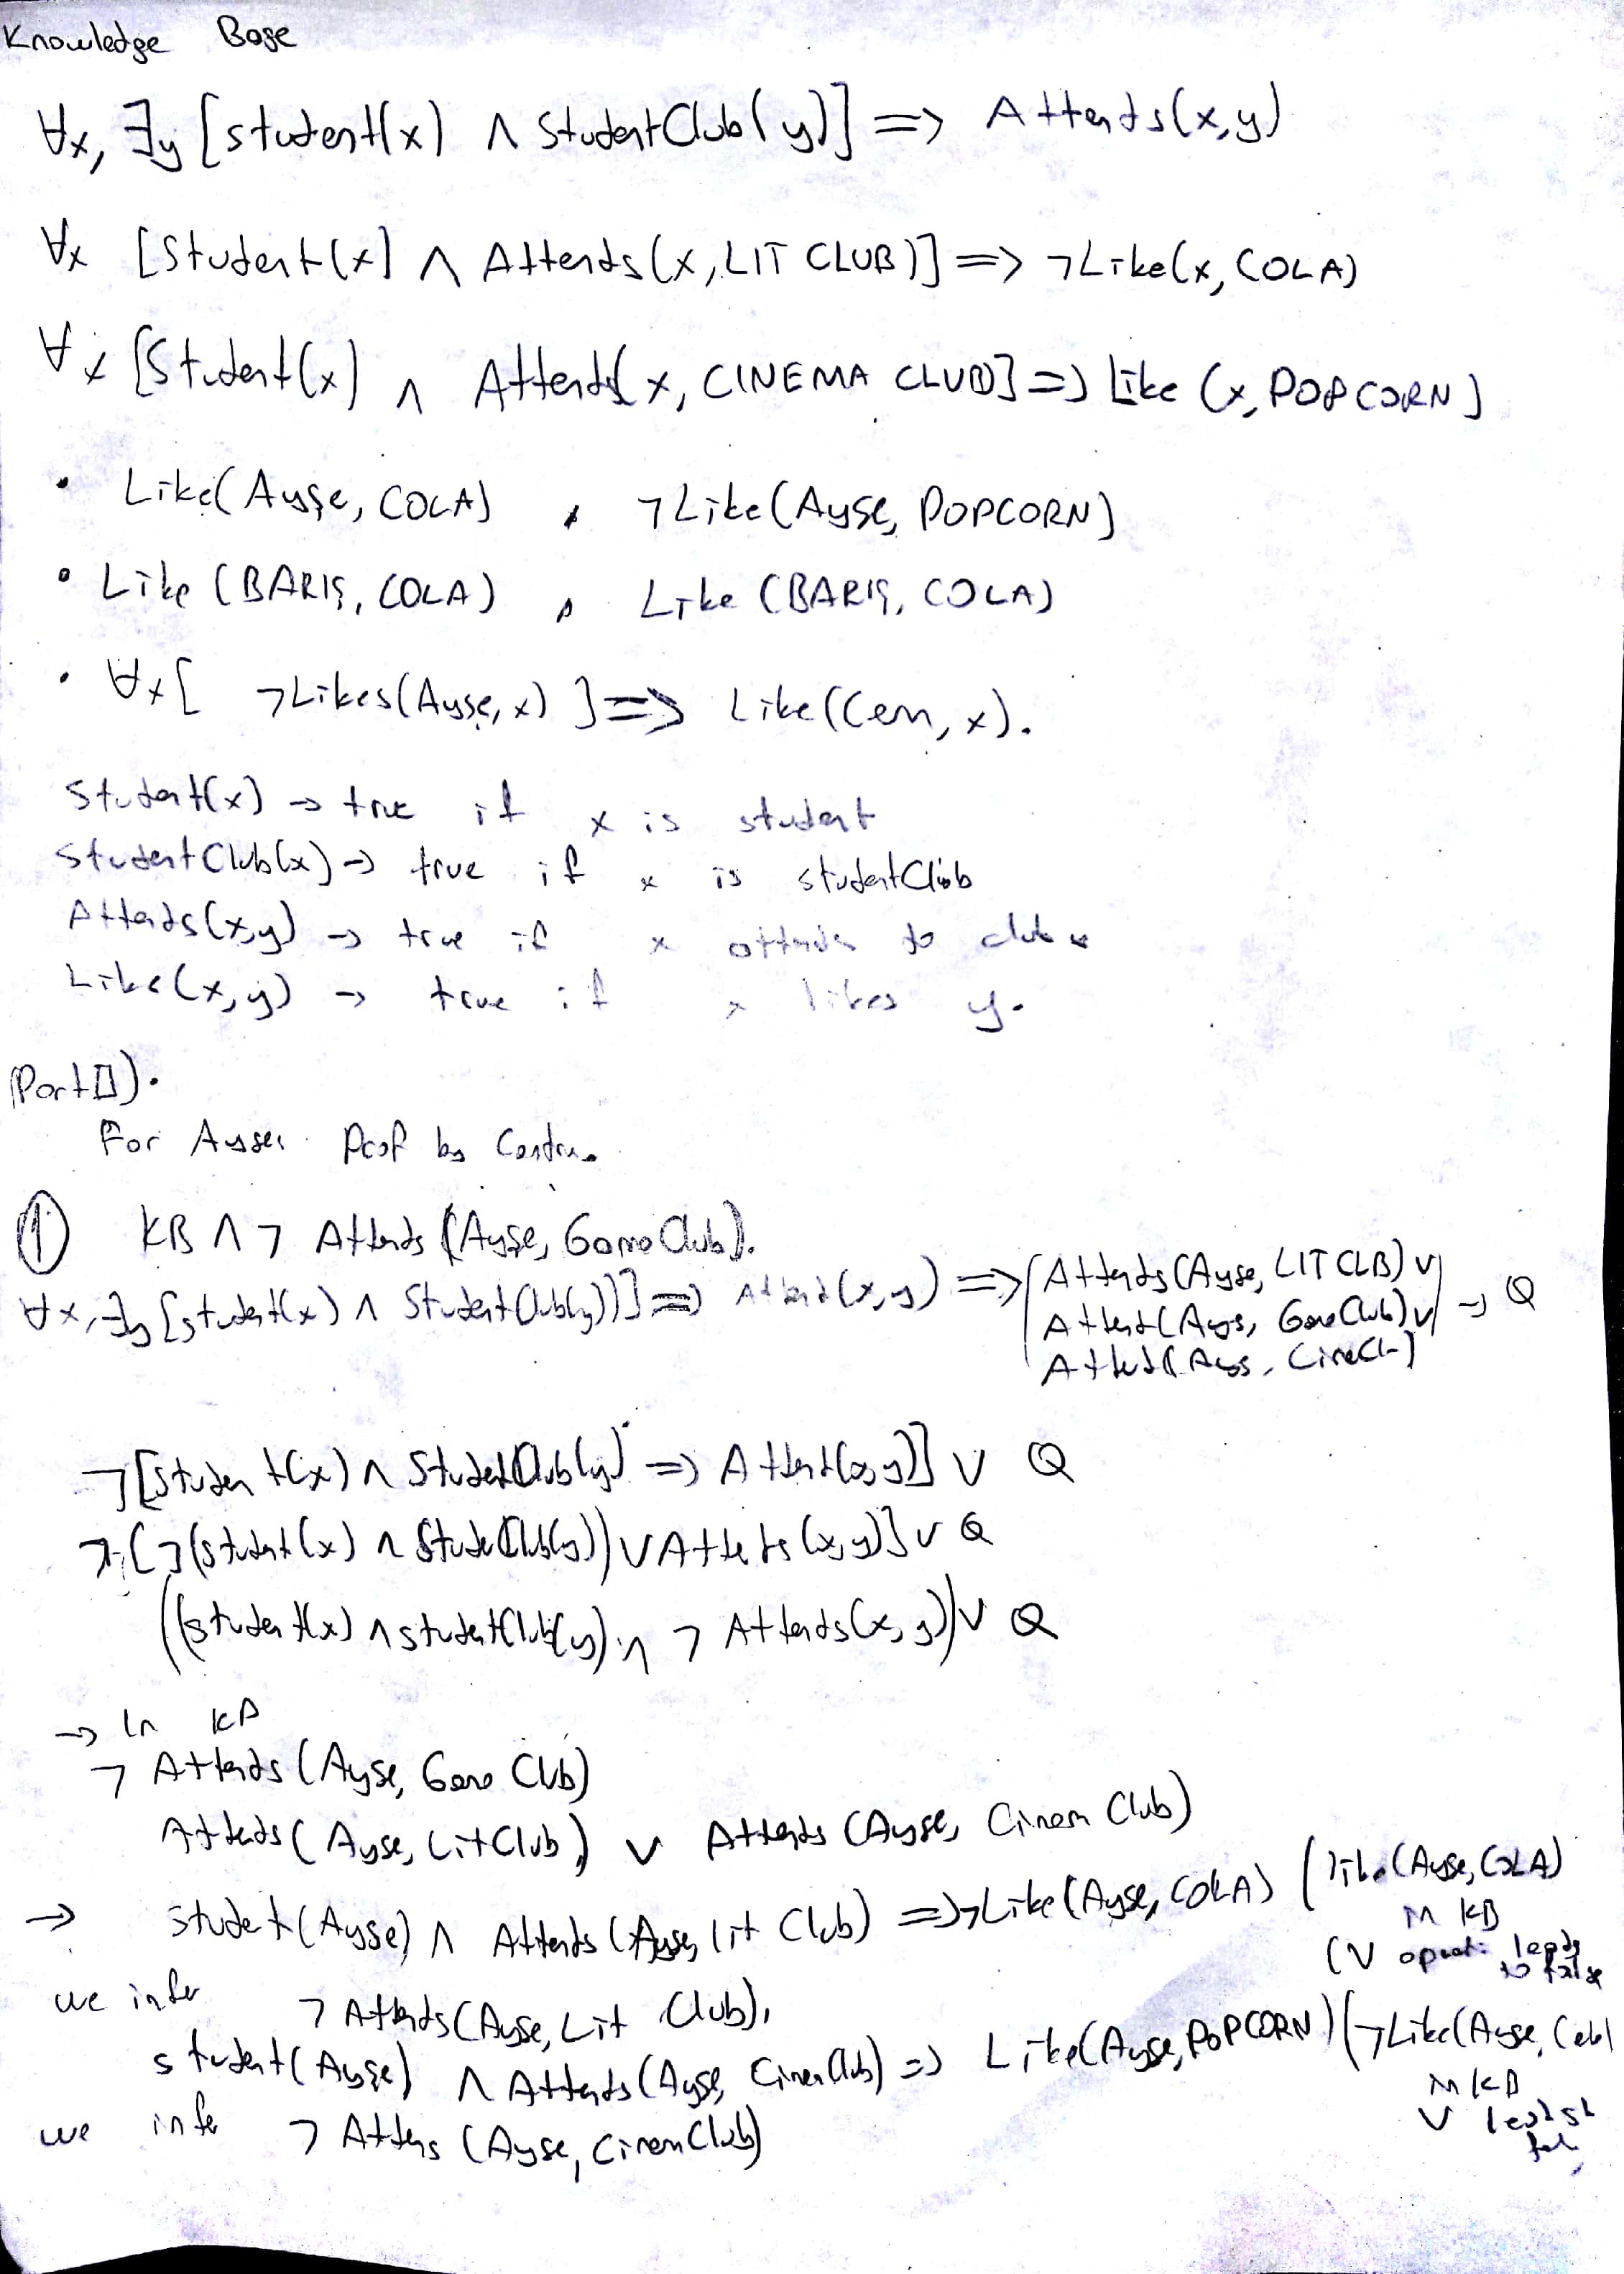 Knowledge Base
∀x, ∃y [student(x) ∧ StudentClub(y)] => Attends(x,y)
∀x [Student(x) ∧ Attends(x, LIT CLUB)] => ¬Like(x, COLA)
∀x [Student(x) ∧ Attends(x, CINEMA CLUB] => Like (x, POPCORN)
• Like(Ayşe, COLA) , ¬Like(Ayşe, POPCORN)
• Like (BARIŞ, COLA) , Like (BARIŞ, COLA)
• ∀x[ ¬Likes(Ayşe, x) ] => Like(Cem, x).
Student(x) → true if x is student
StudentClub(x) → true if x is studentClub
Attends(x,y) → true if x attends to club
Like(x,y) → true if x likes y.
For Ayşe: by
① KB ∧ ¬ Attends (Ayşe, GameClub).
∀x, ∃y [student(x) ∧ StudentClub(y))] => Attend(x,y) => (Attends(Ayşe, LIT CLB) ∨ → Q
Attend(Ayş, GameClub) ∨
Attend(Ayş, CineCl-)
¬[student(x) ∧ StudentClub(y) => Attend(x,y)] ∨ Q
¬[¬(student(x) ∧ StudeClub(y)) ∨ Attets(x,y)] ∨ Q
((student(x) ∧ studentClub(y) ∧ ¬ Attends(x,y)) ∨ Q
→ In KB
¬ Attends (Ayşe, Game Club)
Attends (Ayşe, LitClub) ∨ Attends (Ayşe, Cinem Club)
→ student(Ayşe) ∧ Attends (Ayşe, Lit Club) => ¬Like(Ayşe, COLA) (like(Ayşe, COLA)
in KB
(∨ leads to false
we infer ¬ Attends(Ayşe, Lit Club),
student(Ayşe) ∧ Attends(Ayşe, CinemClub) => Like(Ayşe, POPCORN) (¬Like(Ayşe,
in KB
∨
we infer ¬ Attens (Ayşe, CinemClub)